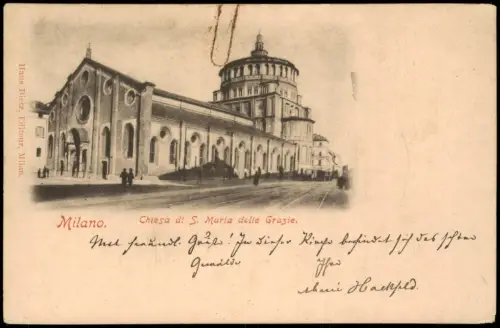 Hans Dietz, Editeur, Milan.
Milano. Chiesa di S. Maria delle Grazie.
Mit freundl. Grüße! In dieser Kirche befindet sich das schöne
Gemälde Ihre
Hackfeld.